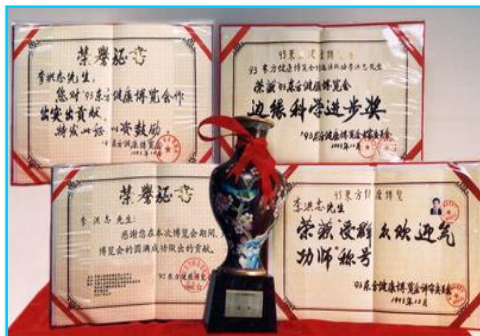 荣誉证书
李洪志先生：
您对'93东方健康博览会作
出突出贡献，
特发此证 以资鼓励。
'93东方健康博览会
1993年12月
李洪志先生
荣获'93东方健康博览会
边缘科学进步奖
'93东方健康博览会
1993年12月
荣誉证书
李洪志先生：
感谢您在本次博览会期间，
博览会的圆满成功做出的贡献。
'93东方健康博览会
李洪志先生
荣获受群众欢迎气
功师"称号
'93东方健康博览会评审委员会
1993年12月